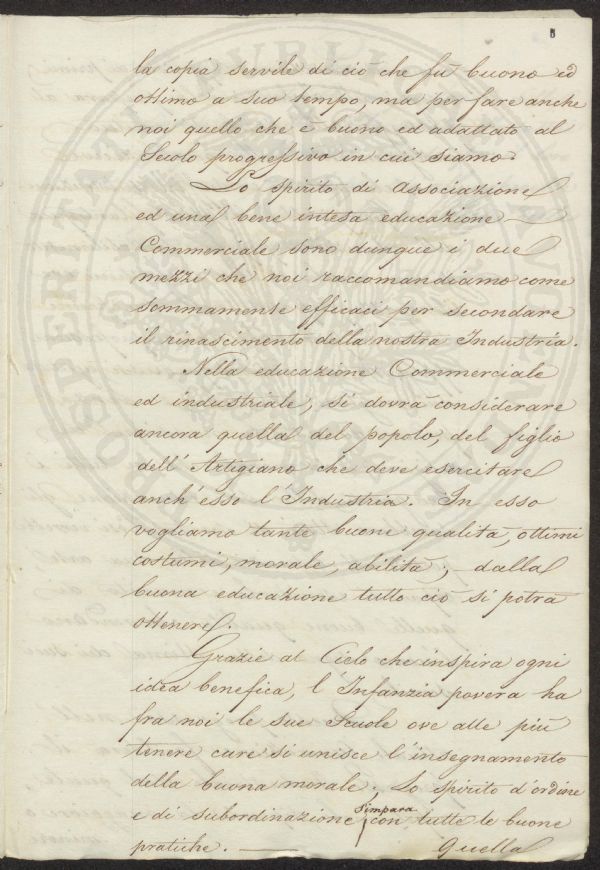 8
la copia servile di ciò che fù buono ed
ottimo a suo tempo, ma per fare anche
noi quello che è buono ed adattato al
Secolo progressivo in cui siamo.
Lo spirito di Associazione
ed una bene intesa educazione
Commerciale sono dunque i due
mezzi che noi raccomandiamo come
sommamente efficaci per secondare
il rinascimento della nostra Industria.
Nella educazione Commerciale
ed industriale, si dovrà considerare
ancora quella del popolo, del figlio
dell' Artigiano che deve esercitare
anch' esso l'Industria. In esso
vogliamo tante buone qualità, ottimi
costumi, morale, abilità; dalla
buona educazione tutto ciò si potrà
ottenere.
Grazie al Cielo che inspira ogni
idea benefica, l'Infanzia povera ha
fra noi le sue Scuole ove alle più
tenere cure si unisce l'insegnamento
della buona morale. Lo spirito d'ordine
e di subordinazione s'impara con tutte le buone
pratiche. — Quella